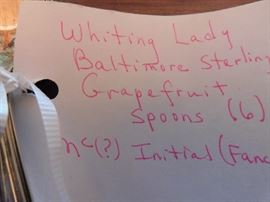 Whiting Lady
Baltimore Sterlin
Grapefruit
Spoons (6)
nc(?) Initial (Fanc